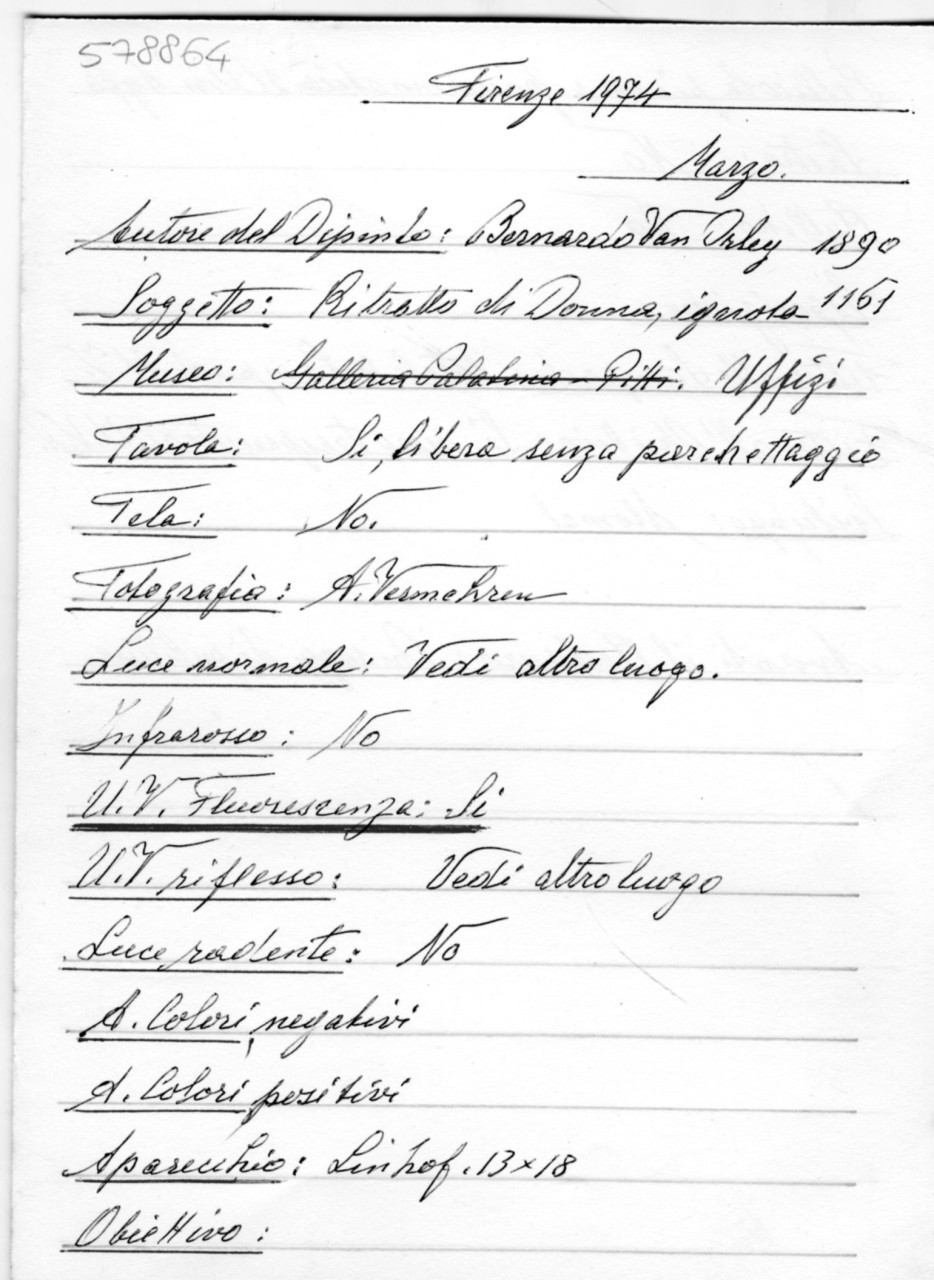 578864
Firenze 1974
Marzo.
Autore del Dipinto: Bernardo Van Orley 1890
Soggetto: Ritratto di Donna, ignota 1161
Museo: Galleria Palatina - Pitti. Uffizi
Tavola: Si, libera senza parchettaggio
Tela: No.
Fotografia: A. Vermehren
Luce normale: Vedi altro luogo.
Infrarosso: No
U.V. Fluorescenza: Si
U.V. riflesso: Vedi altro luogo
Luce radente: No
A. Colori, negativi
A. Colori positivi
Aparecchio: Linhof. 13x18
Obiettivo: